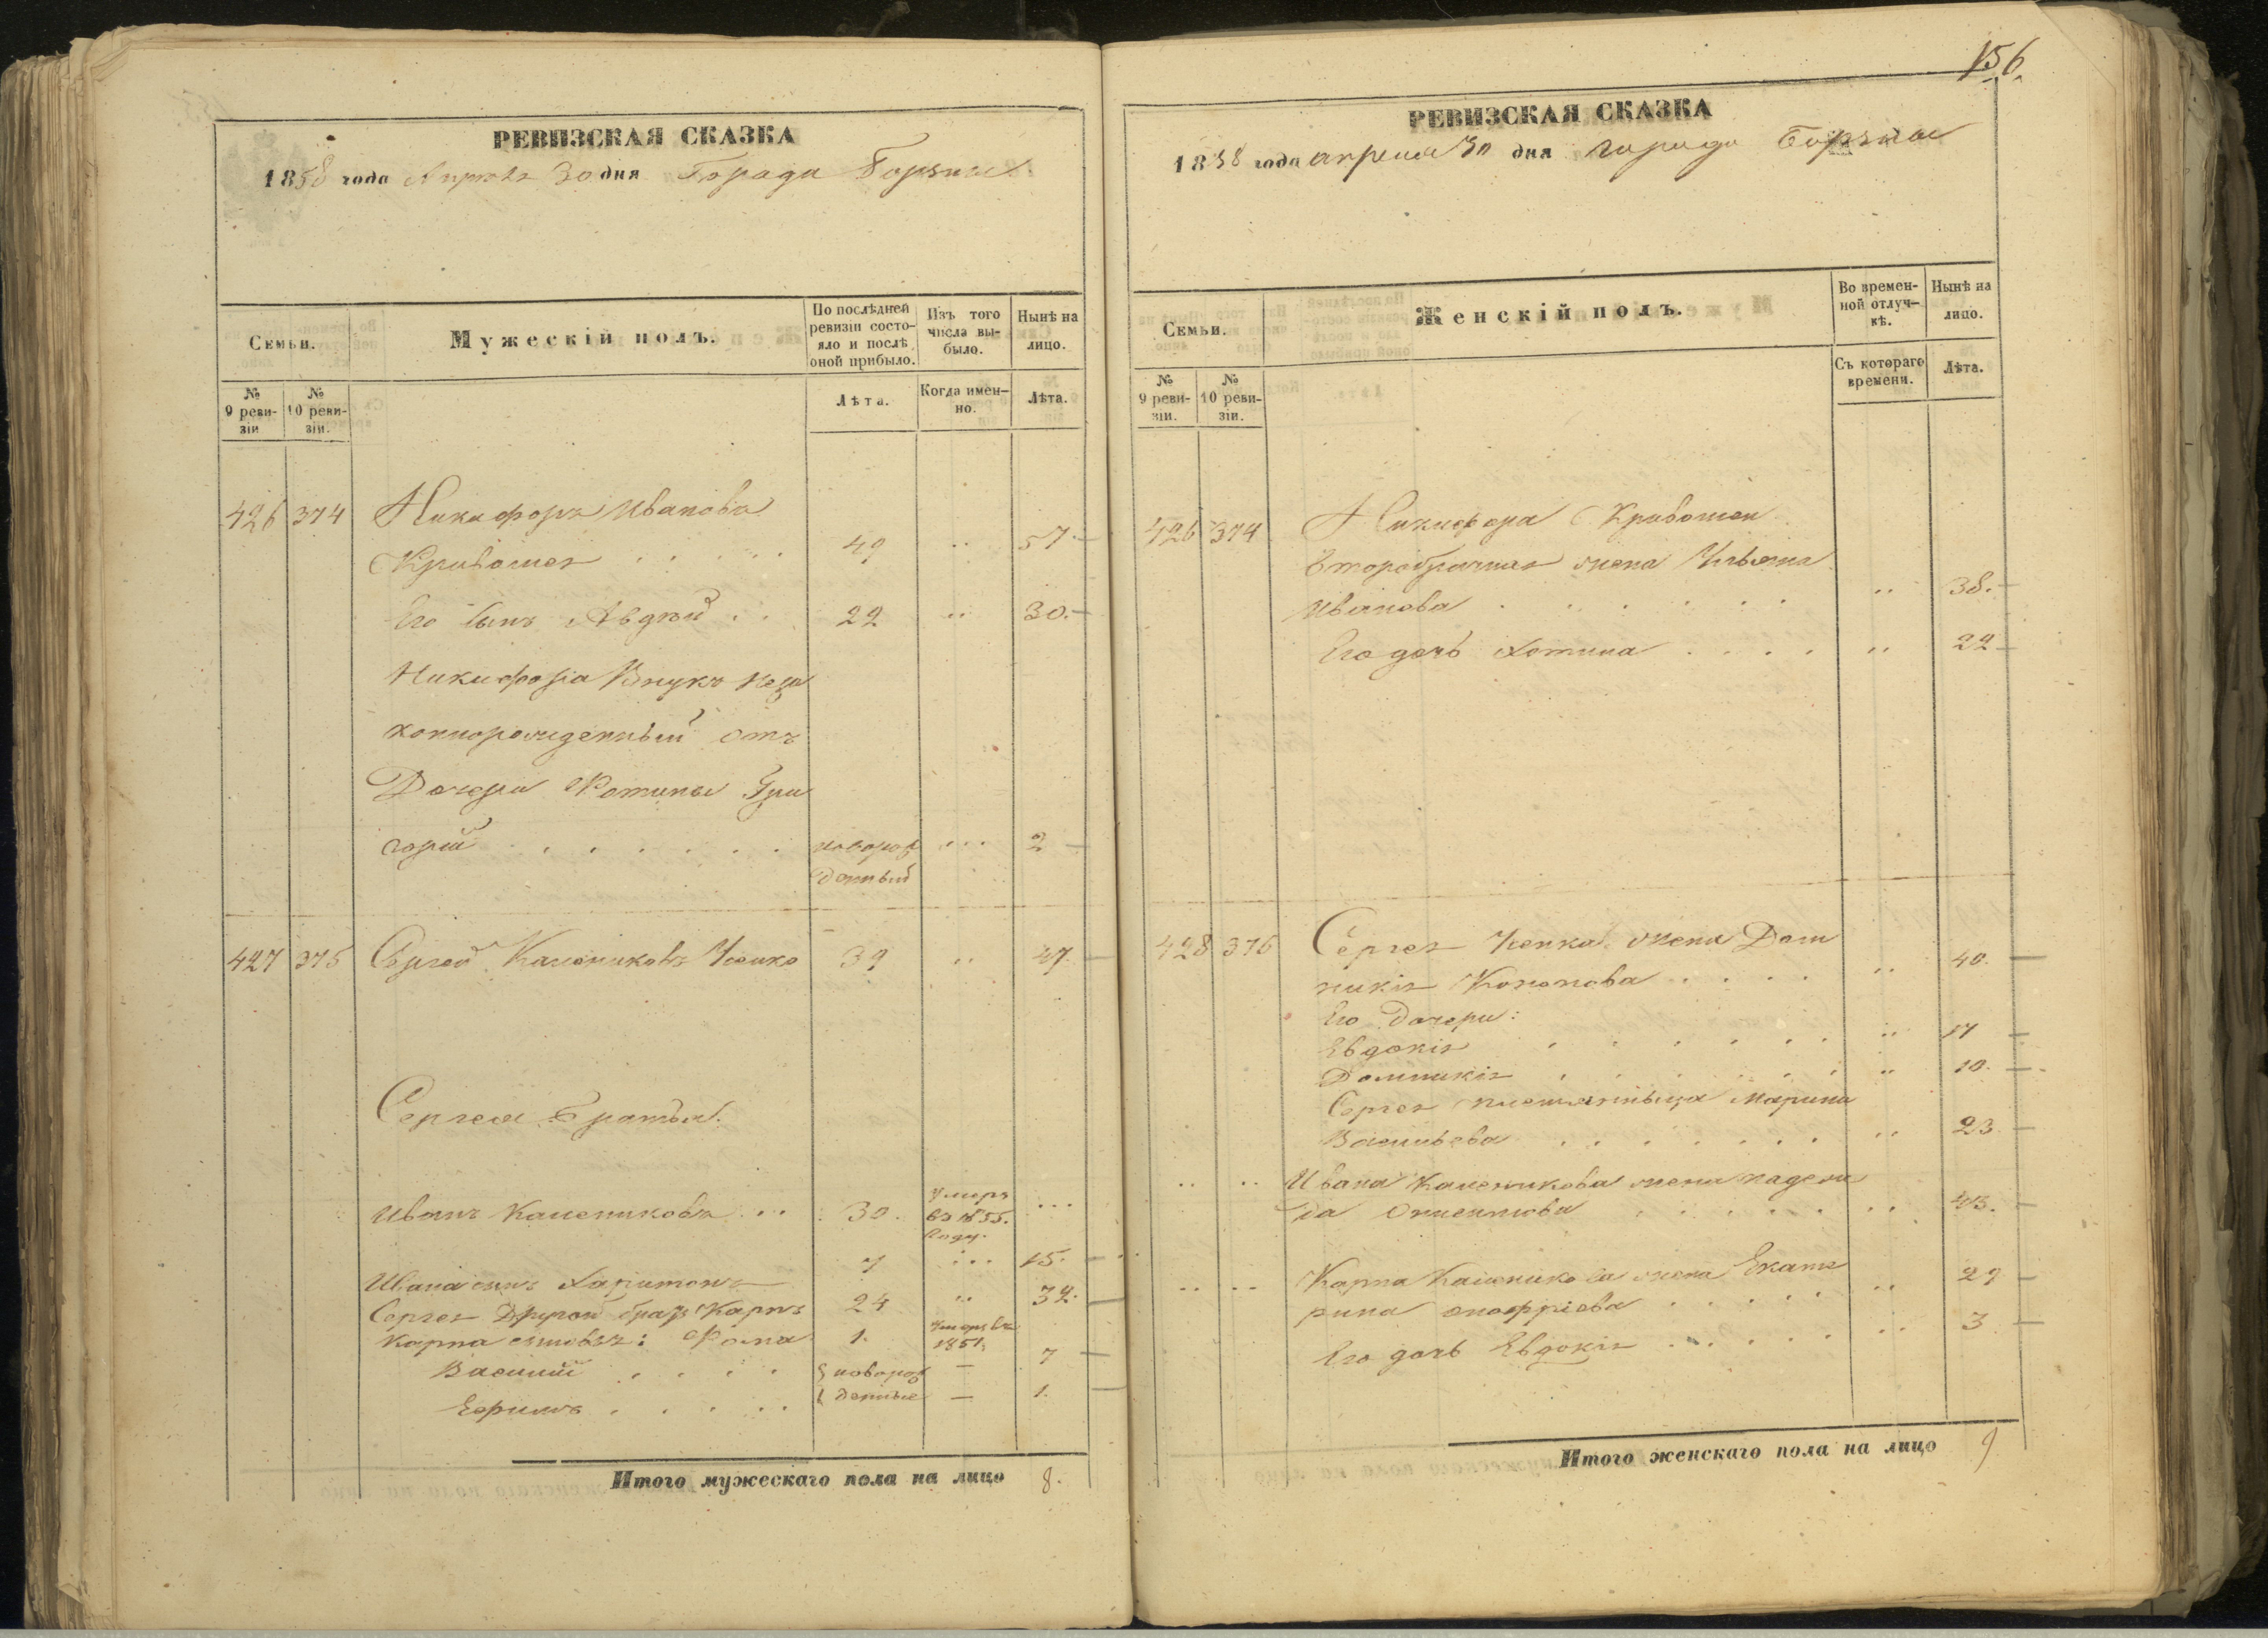 РЕВИЗСКАЯ СКАЗКА
1858 года Апреля 30 дня Города Борзны
Семьи.
Мужескій полъ.
По послѣдней ревизіи состояло и послѣ оной прибыло.
Изъ того числа выбыло.
Нынѣ на лицо.
№ 9 ревизіи
№ 10 ревизіи.
Лѣта.
Когда именно.
Лѣта.
426 374 Никифоръ Иванова
Кривошея . . . . . 49 .. 57.
Его сынъ Авдѣй . . 22 .. 30.
Никифора Внукъ неза
коннорожденный отъ
Дочери Фотины Гри
горій . . . . . . . новорож ... 2
денный
427 375 Сергей Калениковъ Усенко 39 .. 47.
Сергея братья:
Иванъ Калениковъ ... 30. умеръ въ 1855. году. ...
Ивана сынъ Харитонъ 7 ... 15.
Сергея Другой братъ Карпъ 24 .. 32.
Карпа сыновья: Фома 1. умеръ въ 1851.
Василій . . . . новорож — 7
Ефимъ . . . . . денные — 1.
Итого мужескаго пола на лицо 8.
156.
РЕВИЗСКАЯ СКАЗКА
1858 года апреля 30 дня города Борзны
Семьи.
Женскій полъ.
Во временной отлучкѣ.
Нынѣ на лицо.
№ 9 ревизіи.
№ 10 ревизіи.
Съ котораго времени.
Лѣта.
426 374 Никифора Кривошеи
второбрачная жена Ульяна
Иванова . . . . . . . .. 38.
Его дочь Фотина . . . . .. 22
428 376 Сергея Усенка жена Дом
никія Кононова . . . . .. 40.
Его Дочери:
Евдокія . . . . . . .. 17
Домникія . . . . . . .. 10.
Сергея племянница Марина
Васильева . . . . . . . .. 23.
.. .. Ивана Каленикова жена Надеж
да . . . . . . .. 43.
.. .. Карпа Каленикова жена Екате
рина Онофріева . . . . . .. 29
Его дочь Евдокія . . . . . .. 3
Итого женскаго пола на лицо 9